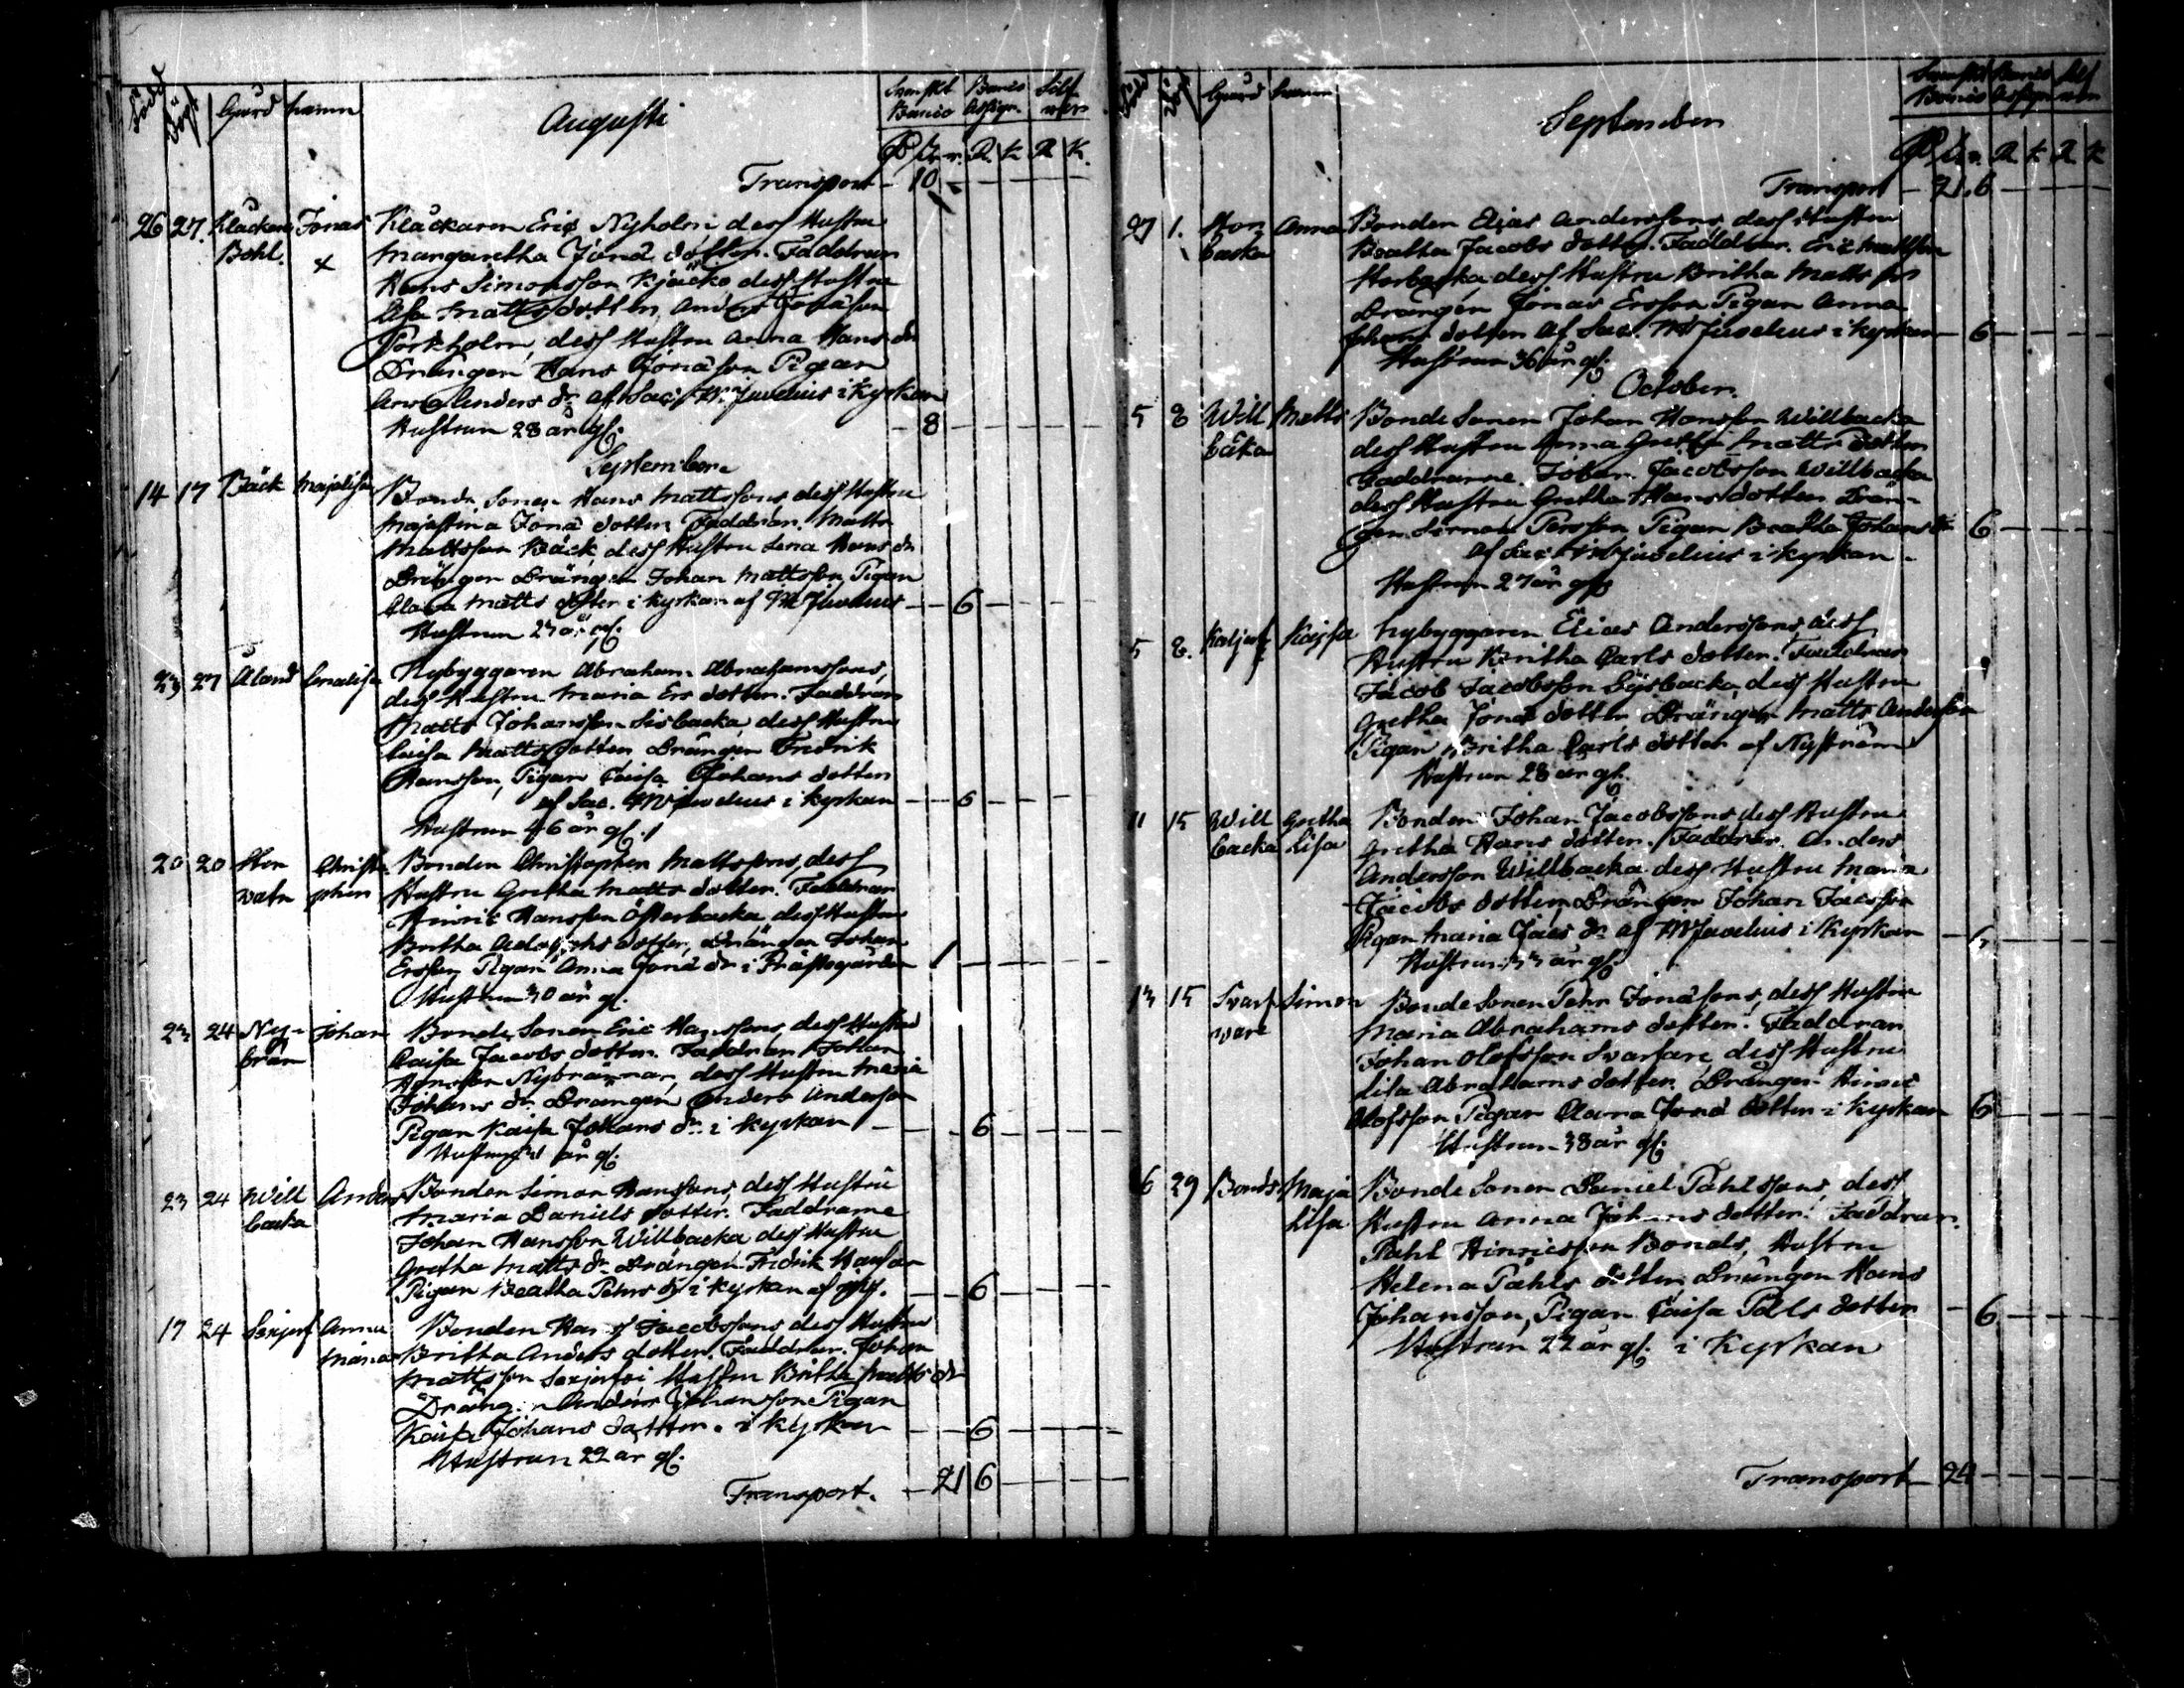 Född Döpt Gård namn Augusti Svenskt Banco Banco Assign Silf mer
R. K. R. K.
Transport - 10 -
26 27. Klåckare Bohl. Jonas Klåckaren Eric Nyholm dess Hustru
Margaretha Jona dotter. Faddrar
Hans Simonsson Kjäcko dess Hustru
Lisa Matts dotter, Anders Jonason
Porkholm, dess Hustru Anna Hans dr
Drängen Hans Jonason Pigan
Anna Anders dr af Sac. Juvelius i kyrkan
Hustrun 28 år gl. - 8 -
September
14 17 Bäck Majalisa Bonde Sonen Hans Mattssons dess Hustru
Majastina Jona dotter Faddrar. Matts
Mattsson Bäck dess Hustru Lena Hans dr
Drängen Drängen Johan Mattsson, Pigan
Clara Matts dotter i kyrkan af Juvelius - 6 -
Hustrun 23 år gl.
23 27 Åland Lenalisa Nybyggaren Abraham Abrahamssons,
dess Hustru Maria Ers dotter. Faddrar
Matts Johansson Sisbacka, dess Hustru
Caisa Matts dotter Drängen Fredrik
Hansson, Pigan Caisa Johans dotter
af Sac. Juvelius i kyrkan - 6 -
Hustrun 46 år gl.
20 20 Christopher Bonden Christopher Mattssons, dess
Hustru Gretha Matts dotter. Faddrar
Hinric Hansson Österbacka dess Hustru
Britha Adolphs dotter, Drängen Johan
Ersson, Pigan Anna Jona dr i Prästegården 1 -
Hustrun 30 år gl.
23 24 Ny-brän Johan Bonde Sonen Eric Hanssons, dess Hustru
Caisa Jacobs dotter. Faddrar Johan
Hansson Nybrännar, dess Hustru Maria
Johans dr Drängen Anders Andersson
Pigan Kaisa Johans dr i kyrkan - 6 -
Hustrun år gl.
23 24 Willbacka Anders Bonden Simon Hanssons, dess Hustru
Maria Daniels dotter. Faddrarne
Johan Hansson Willbacka dess Hustru
Gretha Matts dr Drängen Fredrik Hansson
Pigan Beatha Pehrs dr i kyrkan af - 6 -
17 24 Anna Maria Bonden Hans Jacobssons dess Hustru
Britha Anders dotter. Faddrar. Johan
Mattsson Hustru Britha Matts dr
Dräng. Anders Johansson Pigan
Kaisa Johans dotter. i kyrkan - 6 -
Hustrun 22 år gl.
Transport. - 21 6 -
Gård namn September Svenskt Banco Banco Assign Silf mer
R K R K
Transport - 21. 6
27 1. Anna Bonden Elias Anderssons, dess Hustru
Beatha Jacobs dotter. Faddrar. Eric Mattsson
dess Hustru Britha Matts dr
Drängen Jonas Ersson Pigan Anna
Johans dotter af Sac. Juvelius i kyrkan - 6 -
Hustrun 36 år gl.
October.
5 8 Willbacka Matts Bonde Sonen Johan Hansson Willbacka
dess Hustru Anna Gretha Matts dotter
Faddrarne. Johan Jacobsson Willbacka
dess Hustru Gretha Hans dotter Drän-
gen Simon Persson Pigan Beatha Johans dr 6 -
af Sac. Juvelius i kyrkan.
Hustrun 27 år gl.
5 8. Kajsa Nybyggaren Elias Anderssons dess
Hustru Britha Carls dotter. Faddrar
Jacob Jacobsson dess Hustru
Gretha Jona dotter Drängen Matts Andersson
Pigan Britha Carls dotter af Nyström
Hustrun 28 år gl.
11 15 Willbacka Gretha Lisa Bonden Johan Jacobssons dess Hustru
Gretha Hans dotter. Faddrar. Anders
Andersson Willbacka dess Hustru Maria
Jacobs dotter, Drängen Johan Jacsson
Pigan Maria Jacs dr af Juvelius i kyrkan
Hustrun 33 år gl.
13 15 Simon Bonde Sonen Pehr Jonasons, dess Hustru
Maria Abrahams dotter. Faddrar
Johan Olofsson Svarfvare dess Hustru
Lisa Abrahams dotter. Drängen Hinric
Olofsson, Pigan Clara Jona dotter i kyrkan 6 -
Hustrun 38 år gl.
6 29 Bonds. Maja Lisa Bonde Sonen Daniel Påhlssons, dess
Hustru Anna Johans dotter. Faddrar.
Påhl Hinricsson Bonds, Hustru
Helena Påhls dotter, Drängen Hans
Johansson, Pigan Caisa Påls dotter - 6 -
Hustrun 22 år gl. i Kyrkan
Transport - 24 -